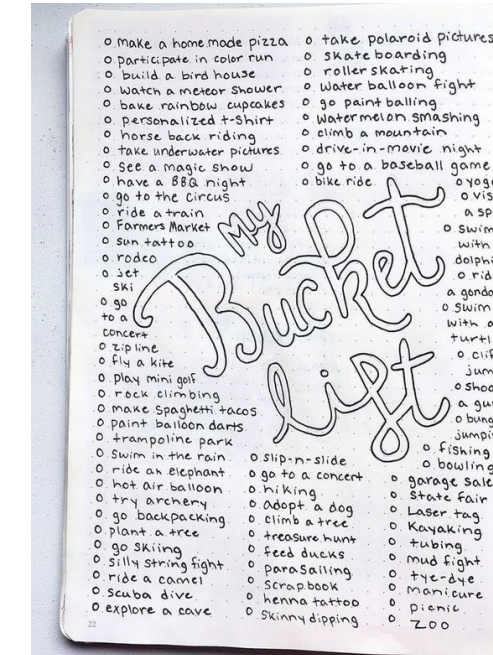 o make a home made pizza
o participate in color run
o build a bird house
o watch a meteor shower
o bake rainbow cupcakes
o personalized t-shirt
o horse back riding
o take underwater pictures
o see a magic show
o have a BBQ night
o go to the circus
o ride a train
o Farmers Market
o sun tattoo
o rodeo
o jet
ski
o go
to a
concert
o zip line
o fly a kite
o play mini golf
o rock climbing
o make spaghetti tacos
o paint balloon darts
o trampoline park
o swim in the rain
o ride an elephant
o hot air balloon
o try archery
o go backpacking
o plant a tree
o go skiing
o silly string fight
o ride a camel
o scuba dive
o explore a cave
22
o take polaroid pictures
o skate boarding
o roller skating
o water balloon fight
o go paint balling
o watermelon smashing
o climb a mountain
o drive-in-movie night
o go to a baseball game
o bike ride
My
Bucket
list
o slip-n-slide
o go to a concert
o hiking
o adopt a dog
o climb a tree
o treasure hunt
o feed ducks
o parasailing
o scrapbook
o henna tattoo
o skinny dipping
o yog
o vis
a sp
o swim
with
dolphi
o rid
a gondo
o swim
with a
turtl
o clif
jum
o shoo
a gu
o bung
jumpi
o fishing
o bowling
o garage sale
o State fair
o Laser tag
o Kayaking
o tubing
o mud fight
o tye-dye
o manicure
o picnic
o ZOO